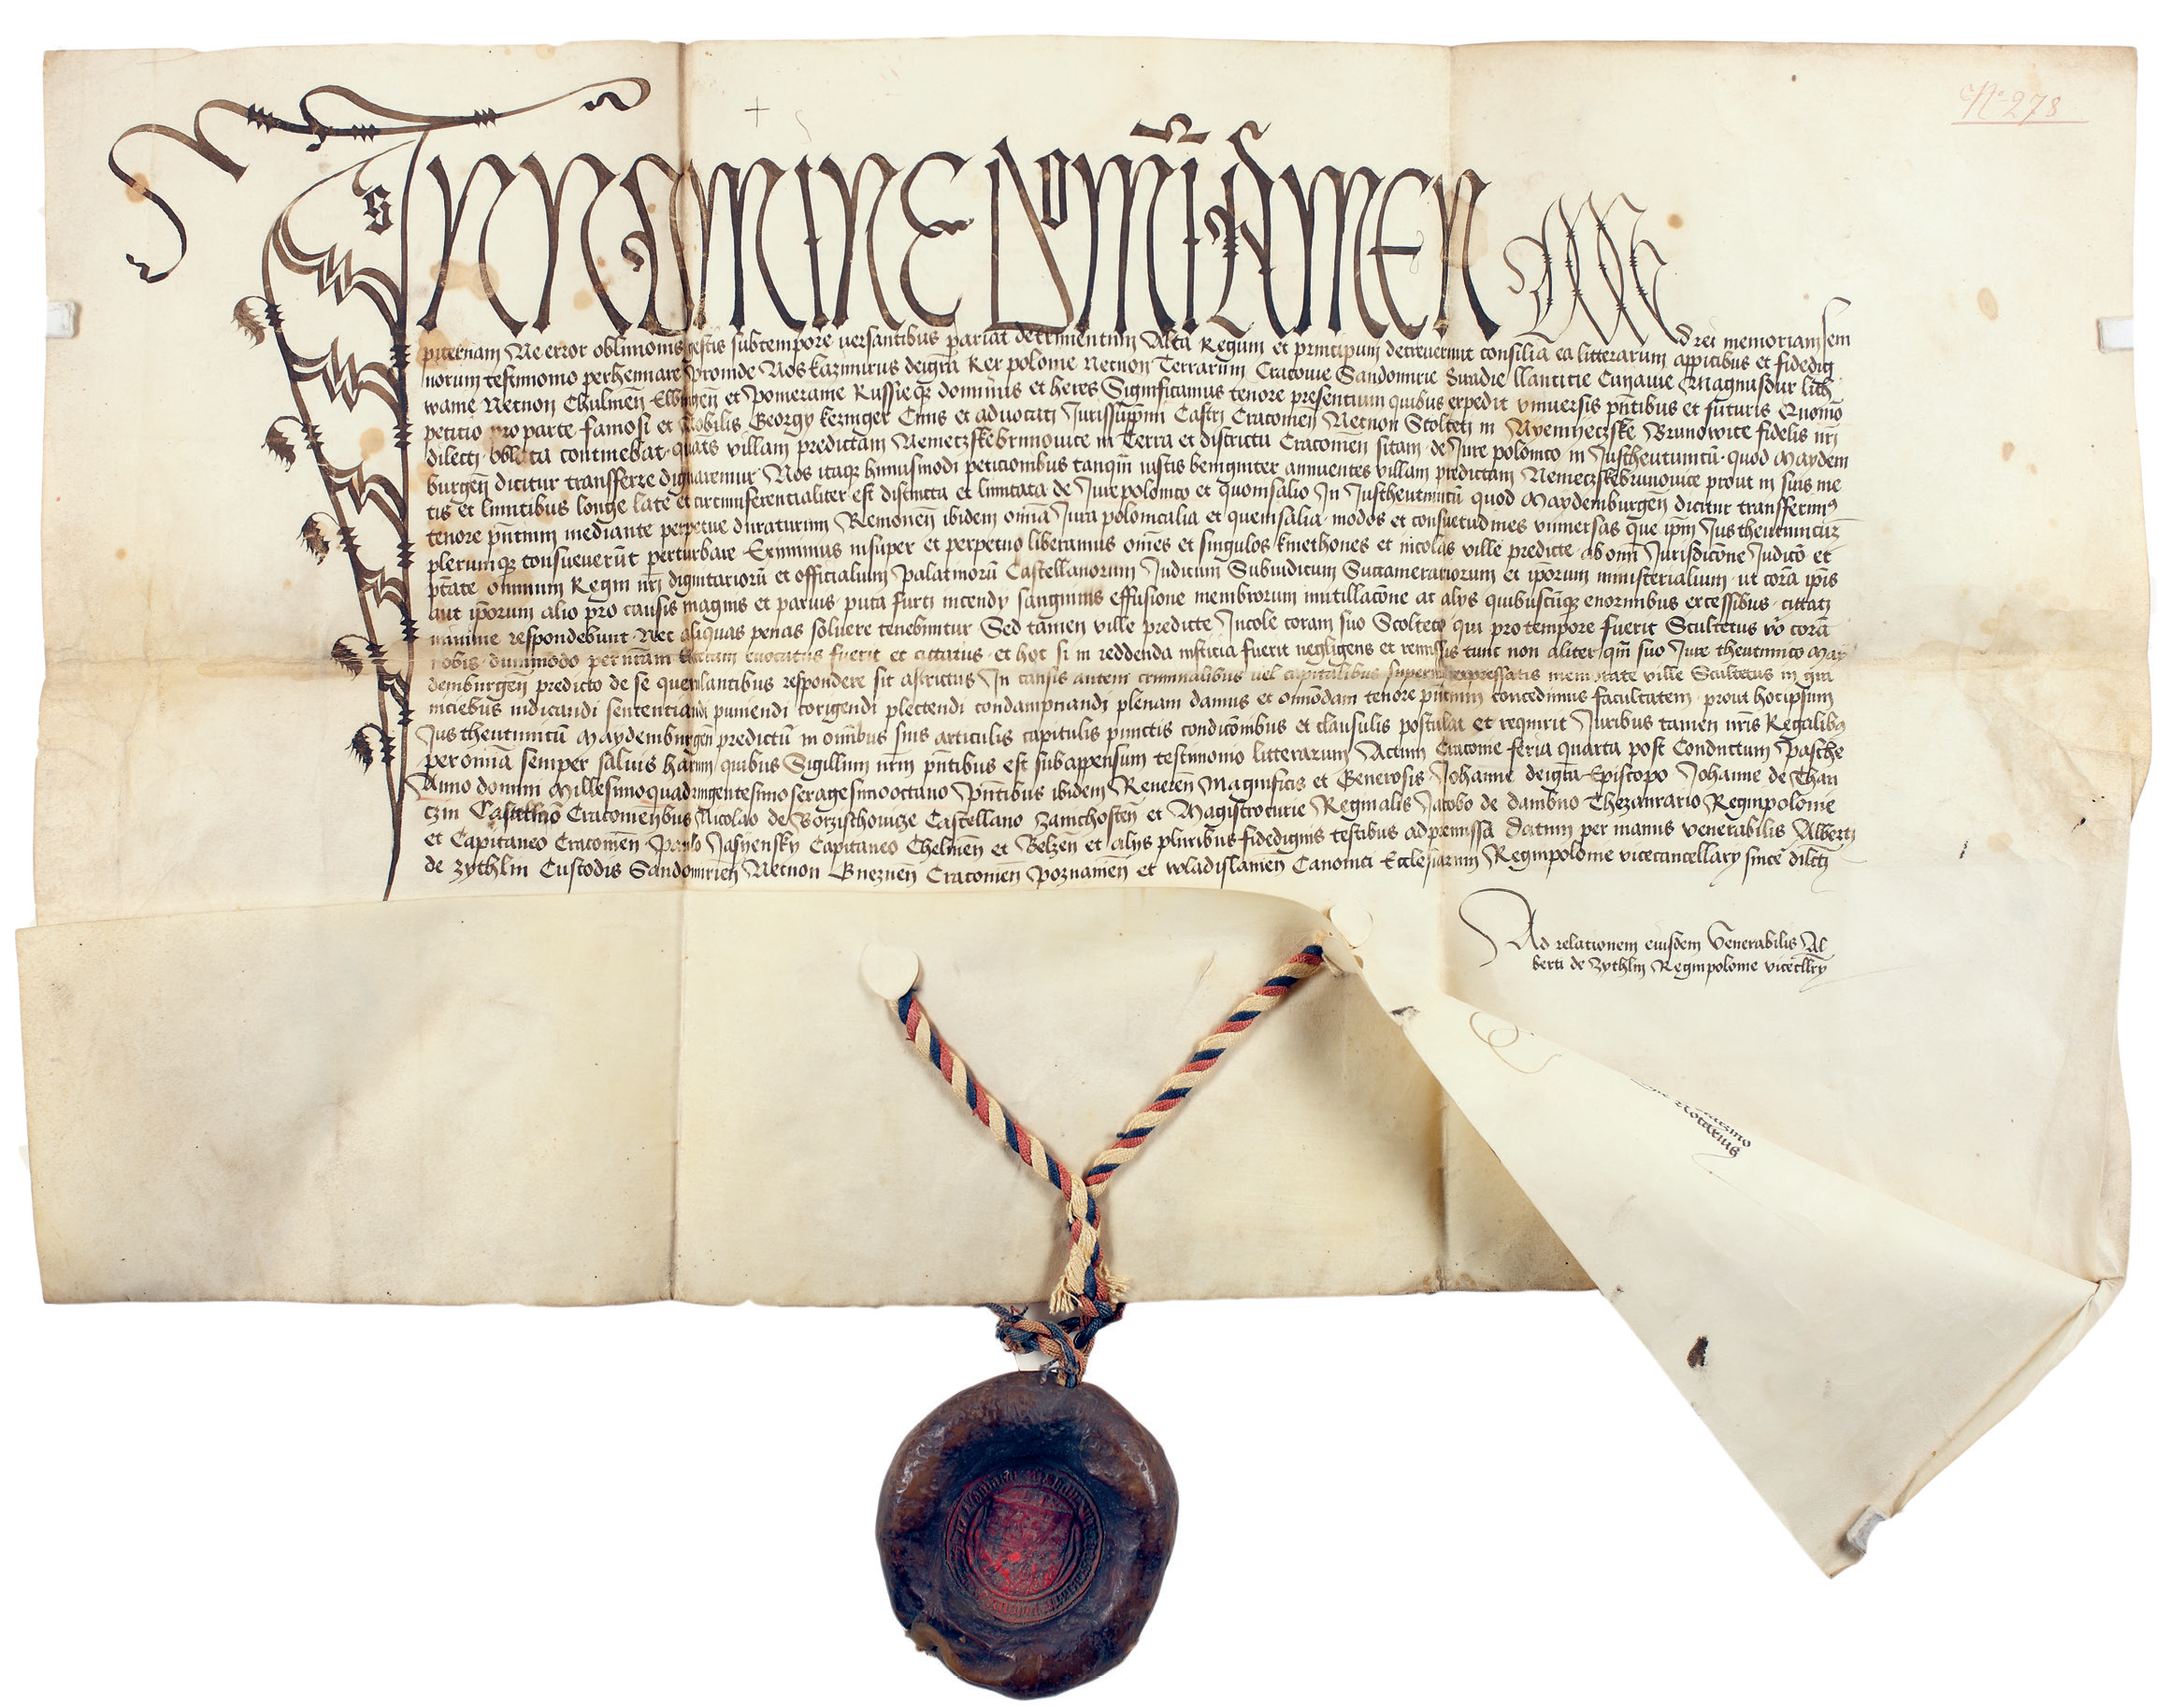 Nº 278
In Nomine Domī Amen
Ad rei memoriam sem
piternam Ne error oblivionis gestis subtempore versantibus pariat detrimentum Alta Regum et principum decreverunt consilia ea litterarum appicibus et fidedig
norum testimonio perhennare Proinde Nos Kazimirus deigrā Rex polonie Necnon Terrarum Cracovie Sandomirie Siradie llancicie Cuyavie Magnusdux lith
wanie Necnon Chulmeñ Elbingeñ et Pomeranie Russieqz dominus et heres Significamus tenore presentium quibus expedit universis pñtibus et futuris Quomō
petitio pro parte famosi et Nobilis Georgy kezinger Civis et advocati Jurissuppmi Castri Cracovieñ Necnon Scolteti in Nyemyeczske Brunowice fidelis nrī
dilecti oblata continebat quāts villam predictam Nemeczskebrunovice in Terra et districtu Cracovieñ sitam de Jure polonico in Justheutunicū quod Maydem
burgeñ dicitur transfferre dignaremur Nos itaqz huiusmodi peticionibus tanqm̄ iustis benigniter annuentes villam predictam Nemeczskebrunovice prout in suis me
tis et limitibus longe late et circumferentialiter est distincta et limitata de Jure polonico et quonsalio In Justheutunicū quod Maydemburgeñ dicitur transfferimus
tenore pñtium mediante perpetue duraturum Removeñ ibidem omīa Jura polonicalia et quensalia modos et consuetudines universas que ipm̄ Jus theutunicum
plerumqz consueverūt perturbare Eximimus insuper et perpetuo liberamus omēs et singulos kmethones et incolas ville predicte ab omī Jurisdicōne Judicō et
ptāte omnium Regni nrī dignitariorū et officialium Palatinorū Castellanorum Judicum Subiudicum Succamerariorum et ipōrum ministerialium ut corā ipis
aut ipōrum alio pro causis magnis et parvis puta furti incendy sanguinis effusione membrorum mutillacōne ac alys quibuscūqz enormibus excessibus cittati
minime respondebunt Nec aliquas penas solvere tenebuntur Sed tamen ville predicte Incole coram suo Scolteto qui pro tempore fuerit Scultetus vō corā
nobis dummodo per nrām literam evocatus fuerit et cittatus et hoc si in reddenda iusticia fuerit negligens et remissis tunc non aliter qm̄ suo Jure theutunico May
demburgeñ predicto de se querulantibus respondere sit astrictus In causis autem criminalibus vel capitalibus superius expressatis memorate ville Scultetus in qui
niciebus iudicandi sententiandi puniendi corigendi plectendi condampnandi plenam damus et omōdam tenore pñtium concedimus facultatem prout hocipsum
Jus theutunicū Maydemburgeñ predictū in omībus suis articulis capitulis punctis condicōnibus et clausulis postulat et requirit Juribus tamen nris Regalibus
per omīa semper salvis harum quibus Sigillum nrm pñtibus est subappensum testimonio litterarum Actum Cracovie feria quarta post Conductum Pasche
Anno domini Millesimoquadringentesimosexagesimooctavo Pñtibus ibidem Revereñ Magnificis et Generosis Johanne deigrā Episcopo Johanne de Than
czin Castellāo Cracovieñbus Nicolao de Borzischovicze Castellano Zawichosteñ et Magistrocurie Reginalis Jacobo de dambno Thezaurario Regnipolonie
et Capitaneo Cracovieñ Paulo Jasyensky Capitaneo Chelmeñ et Belzeñ et alys pluribus fidedignis testibus ad premissa Datum per manus venerabilis Alberti
de Zychlin Custodis Sandomirieñ Necnon Gnezneñ Cracovieñ Poznanieñ et wladislavieñ Canonici Ecclesiarum Regnipolonie vicecancellary sincē dilcti
Ad relationem eiusdem Venerabilis Al
berti de Zychlin Regnipolonie vicecllry
Notarius